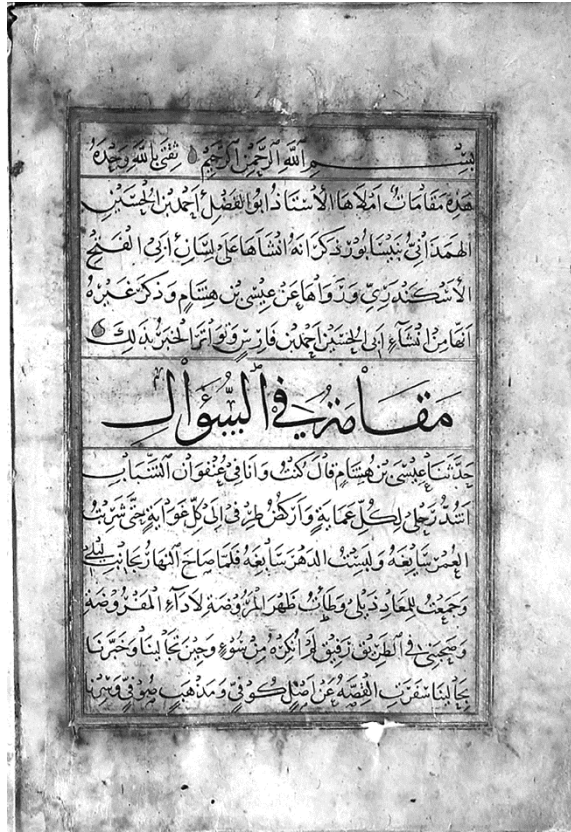 بِسْمِ اللَّهِ الرَّحْمٰنِ الرَّحِيمِ ثِقَتِي بِاللَّهِ وَحْدَهُ
هَذِهِ مَقَامَاتٌ أَمْلَاهَا الأُسْتَاذُ أَبُو الفَضْلِ أَحْمَدُ بْنُ الحُسَيْنِ
الهَمَذَانِيُّ بِنَيْسَابُورَ ذَكَرَ أَنَّهُ أَنْشَأَهَا عَلَى لِسَانِ أَبِي الفَتْحِ
الأَسْكَنْدَرِيِّ وَرَوَاهَا عَنْ عِيسَى بْنِ هِشَامٍ وَذَكَرَ غَيْرُهُ
أَنَّهَا مِنْ إِنْشَاءِ أَبِي الحُسَيْنِ أَحْمَدَ بْنِ فَارِسٍ وَتَوَاتَرَ الخَبَرُ بِذَلِكَ
مَقَامَةٌ فِي السُّؤَالِ
حَدَّثَنَا عِيسَى بْنُ هِشَامٍ قَالَ كُنْتُ وَأَنَا فِي عُنْفُوَانِ الشَّبَابِ
أَشُدُّ رَحْلِي لِكُلِّ عَمَايَةٍ وَأَرْكُضُ طِرْفِي إِلَى كُلِّ غَوَايَةٍ حَتَّى شَرِبْتُ
العُمْرَ سَائِغَهُ وَلَبِسْتُ الدَّهْرَ سَابِغَهُ فَلَمَّا صَاحَ النَّهَارُ بِجَانِبِ لَيْلِي
وَجَمَعْتُ لِلْمَعَادِ ذَيْلِي وَطِئْتُ ظَهْرَ المَرُوضَةِ لِأَدَاءِ المَفْرُوضَةِ
وَصَحِبَنِي فِي الطَّرِيقِ رَفِيقٌ لَمْ أُنْكِرْهُ مِنْ سُوءٍ وَحِينَ تَجَالَيْنَا وَخَبَّرْنَا
بِحَالَيْنَا سَفَرَتِ القِصَّةُ عَنْ أَصْلٍ كُوفِيٍّ وَمَذْهَبٍ صُوفِيٍّ وَسِرْنَا